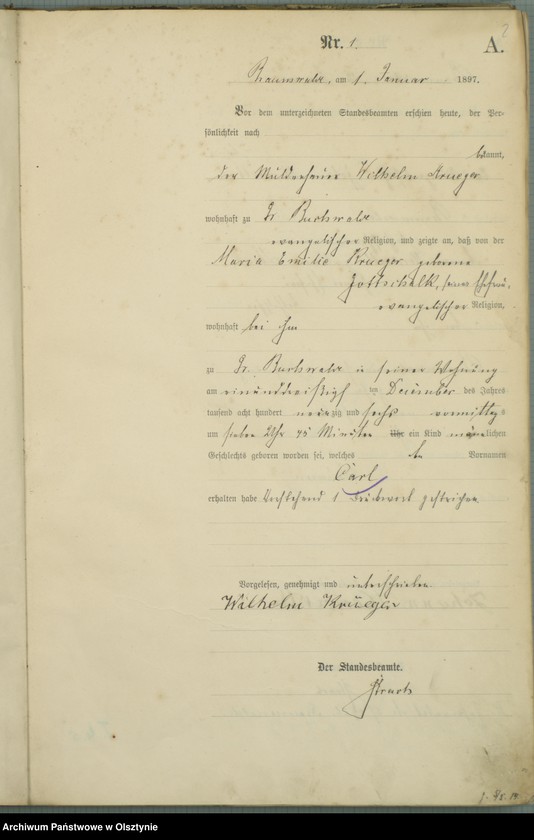 Nr. 1.
A.
Braunswalde, am 1. Januar 1897.
Vor dem unterzeichneten Standesbeamten erschien heute, der Per-
sönlichkeit nach
bekannt,
der Wilhelm Krueger
wohnhaft zu Gr. Buchwalde
evangelischer Religion, und zeigte an, daß von der
Maria Emilie Krueger geborene
Gottschalk, seiner Ehefrau,
evangelischer Religion,
wohnhaft bei ihm
zu Gr. Buchwalde in seiner Wohnung
am einunddreißigsten December des Jahres
tausend acht hundert neunzig und sechs vormittags
um sieben Uhr 45 Minuten Uhr ein Kind männlichen
Geschlechts geboren worden sei, welches den Vornamen
Carl
erhalten habe Vorstehend 1 Druckwort gestrichen
Vorgelesen, genehmigt und unterschrieben
Wilhelm Krueger
Der Standesbeamte.
Archiwum Państwowe w Olsztynie